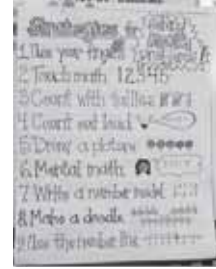 Strategies for
1. Use your fingers
2. Touch math 12345
3. Count with tallies
4. Count out loud
5. Draw a picture
6. Mental math
7. Write a number model
8. Make a doodle
9. Use the number line